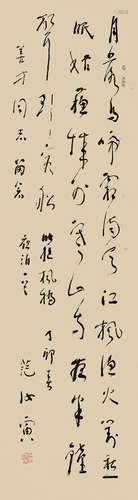 月落乌啼霜满天江枫渔火对愁
眠姑苏城外寒山寺夜半钟
声到客船
张继枫桥
夜泊
丁卯春
范汝寅
善才同志